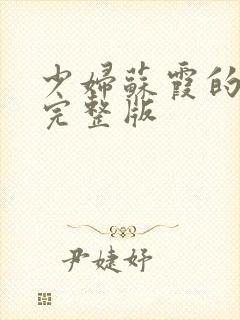 少婦蘇霞的
完整版
尹婕妤